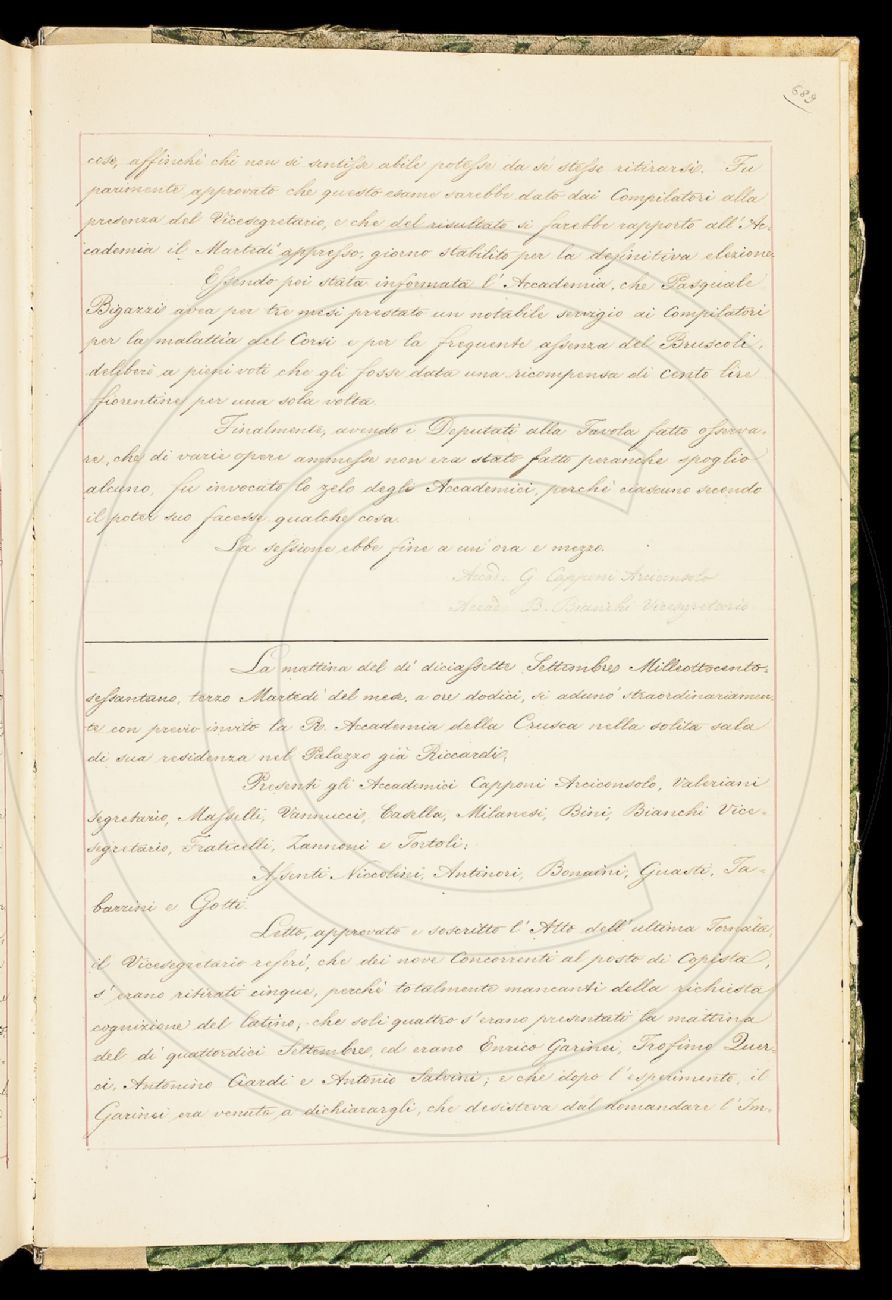 689
cose, affinchè chi non si sentisse abile potesse da sè stesso ritirarsi. Fu
parimente approvato che questo esame sarebbe dato dai Compilatori alla
presenza del Vicesegretario, e che del risultato si farebbe rapporto all'Ac-
cademia il Martedì appresso, giorno stabilito per la definitiva elezione.
Essendo poi stata informata l'Accademia, che Pasquale
Bigazzi avea per tre mesi prestato un notabile servigio ai Compilatori
per la malattia del Corsi e per la frequente assenza del Bruscoli,
deliberò a pieni voti che gli fosse data una ricompensa di cento lire
fiorentine per una sola volta.
Finalmente, avendo i Deputati alla Tavola fatto osserva-
re, che di varie opere ammesse non era stato fatto peranche spoglio
alcuno, fu invocato lo zelo degli Accademici, perchè ciascuno secondo
il poter suo facesse qualche cosa.
La sessione ebbe fine a un'ora e mezzo.
Accad. G. Capponi Arciconsolo
Accad. B. Bianchi Vicesegretario
La mattina del dì diciassette Settembre Milleottocento-
sessantuno, terzo Martedì del mese, a ore dodici, si adunò straordinariamen-
te con previo invito la R. Accademia della Crusca nella solita sala
di sua residenza nel Palazzo già Riccardi.
Presenti gli Accademici Capponi Arciconsolo, Valeriani
Segretario, Masselli, Vannucci, Casella, Milanesi, Bini, Bianchi Vice-
segretario, Fraticelli, Zannoni e Tortoli;
Assenti Niccolini, Antinori, Bonaini, Guasti, Ta-
barrini e Gotti.
Letto, approvato e soscritto l'Atto dell'ultima Tornata,
il Vicesegretario riferì, che dei nove Concorrenti al posto di Copista,
s'erano ritirati cinque, perchè totalmente mancanti della richiesta
cognizione del latino; che soli quattro s'erano presentati la mattina
del dì quattordici Settembre, ed erano Enrico Garinei, Trofimo Quer-
ci, Antonino Ciardi e Antonio Salvini; e che dopo l'esperimento, il
Garinei era venuto a dichiarargli, che desisteva dal domandare l'Im-